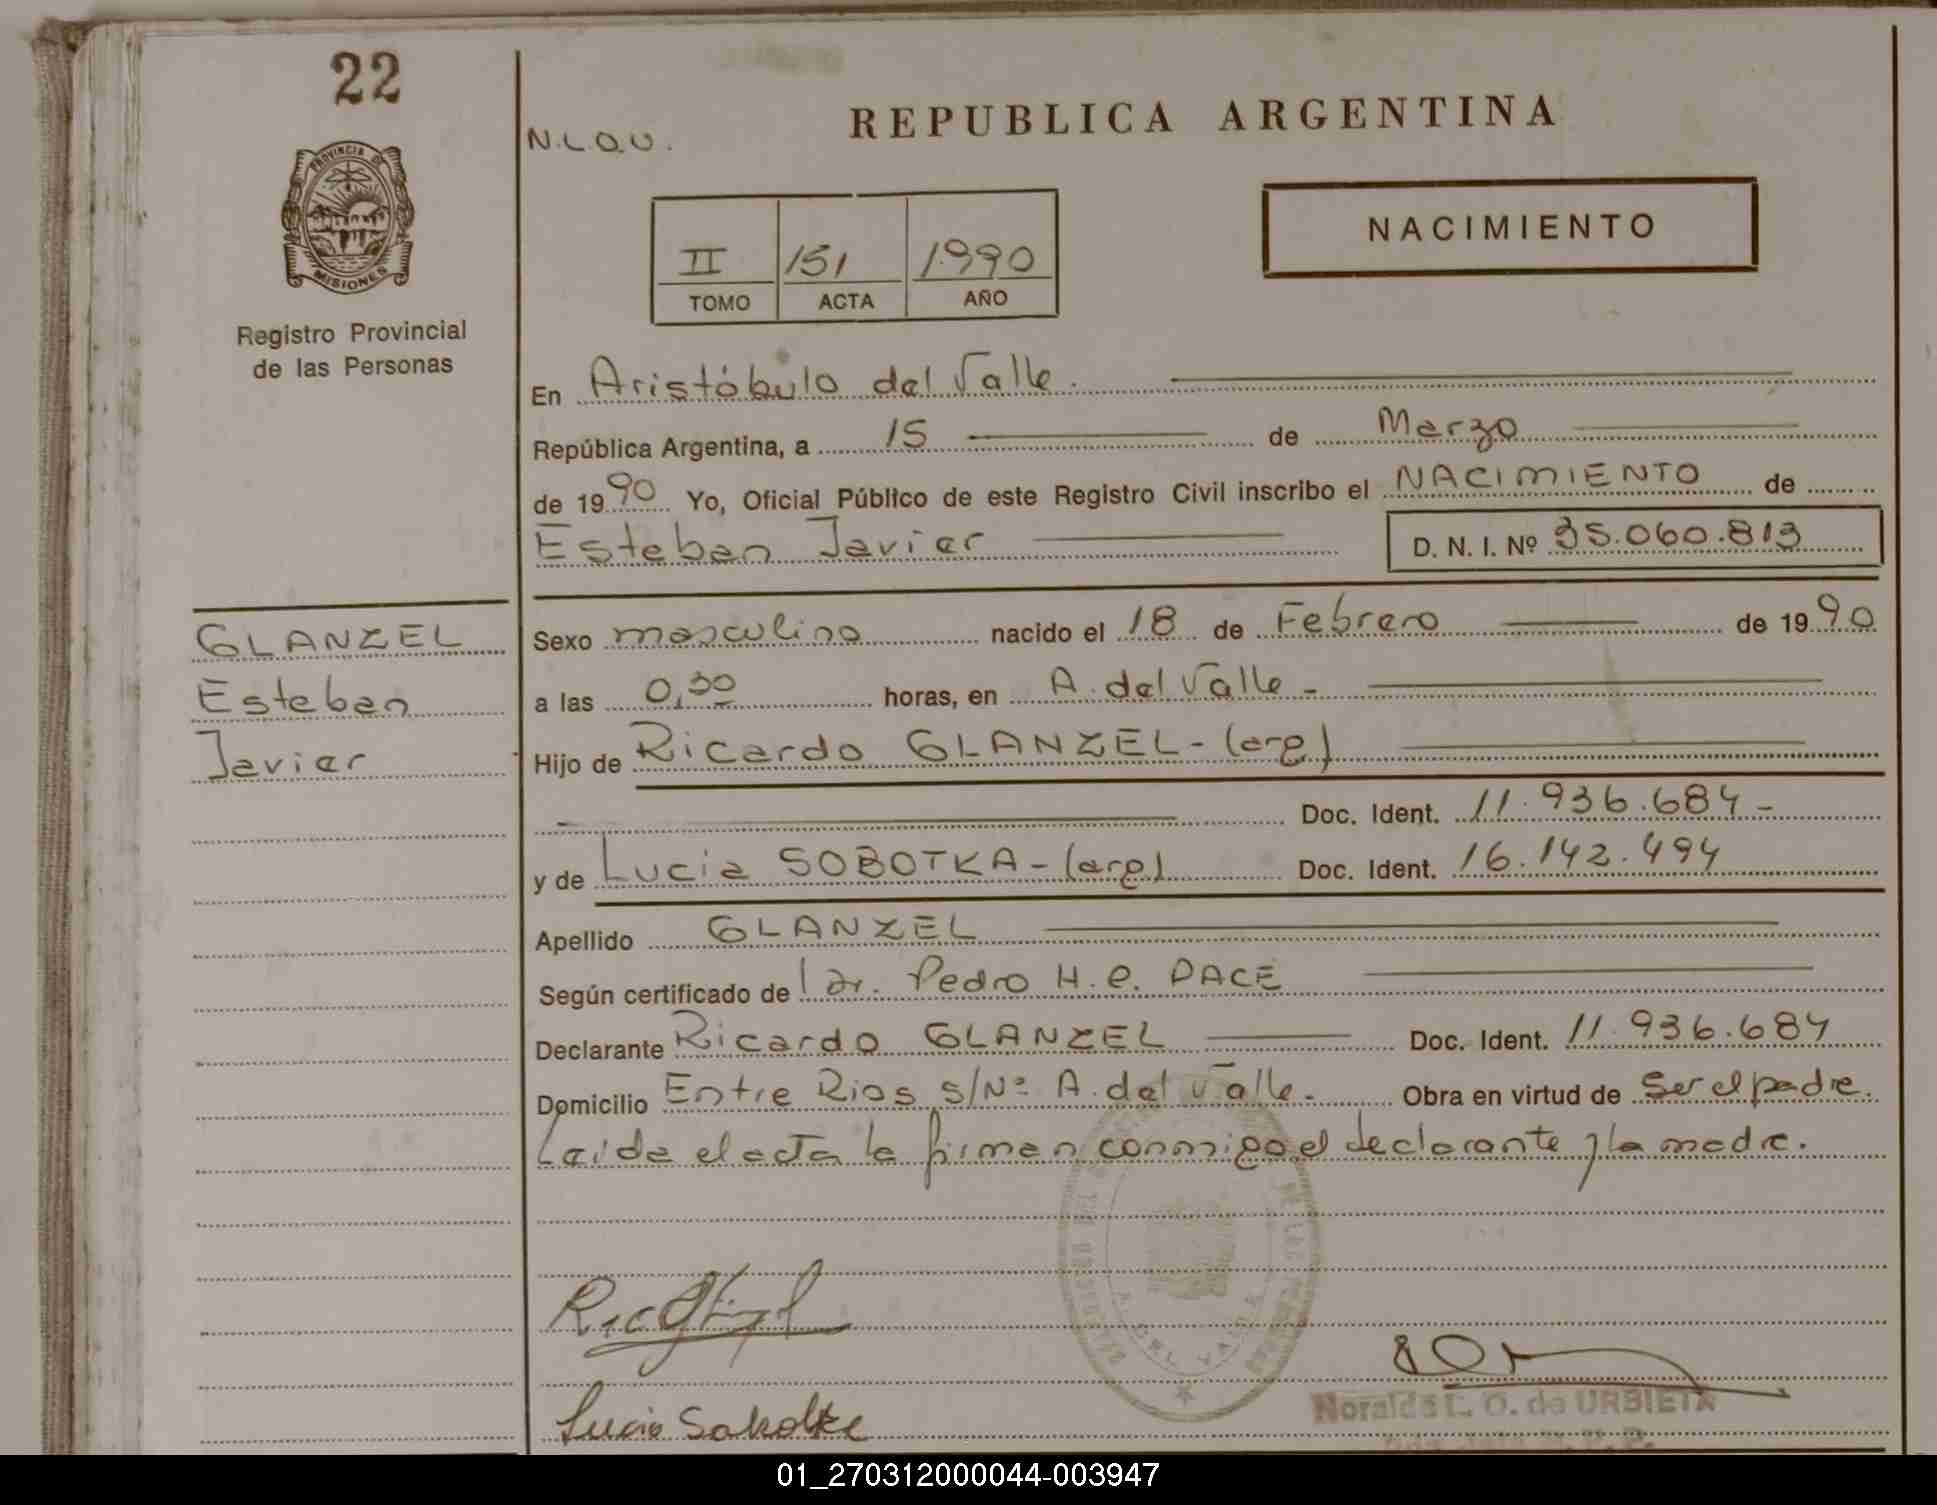 22
PROVINCIA DE
MISIONES
Registro Provincial
de las Personas
GLANZEL
Esteban
Javier
N.L.O.U.
REPUBLICA ARGENTINA
NACIMIENTO
II 151 1990
TOMO ACTA AÑO
En Aristóbulo del Valle.
República Argentina, a 15 de Marzo
de 1990 Yo, Oficial Público de este Registro Civil inscribo el NACIMIENTO de
Esteban Javier D. N. I. Nº 35.060.813
Sexo masculino nacido el 18 de Febrero de 1990
a las 0,30 horas, en A. del Valle -
Hijo de Ricardo GLANZEL - (arg)
Doc. Ident. 11.936.684 -
y de Lucia SOBOTKA - (arg) Doc. Ident. 16.142.494
Apellido GLANZEL
Según certificado de Dr. Pedro H. C. PACE
Declarante Ricardo GLANZEL Doc. Ident. 11.936.684
Domicilio Entre Rios s/Nº A. del Valle. Obra en virtud de Ser el padre.
Leida el acta la firman conmigo el declarante y la madre.
A. DEL VALLE
Lucia Sobotka
Noralda L. O. de URBIETA
01_270312000044-003947